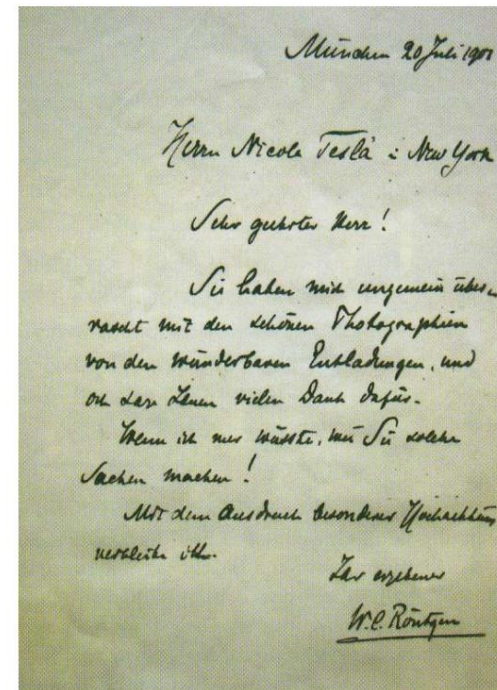 München 20 Juli 1901
Herrn Nicola Tesla i New York
Sehr geehrter Herr!
Sie haben mich ungemein über-
rascht mit den schönen Photographien
von den wunderbaren Entladungen, und
ich sage Ihnen vielen Dank dafür.
Wenn ich nur wüsste, wie Sie solche
Sachen machen!
Mit dem Ausdruck besonderer Hochachtung
verbleibe ich
Ihr ergebener
W. C. Röntgen